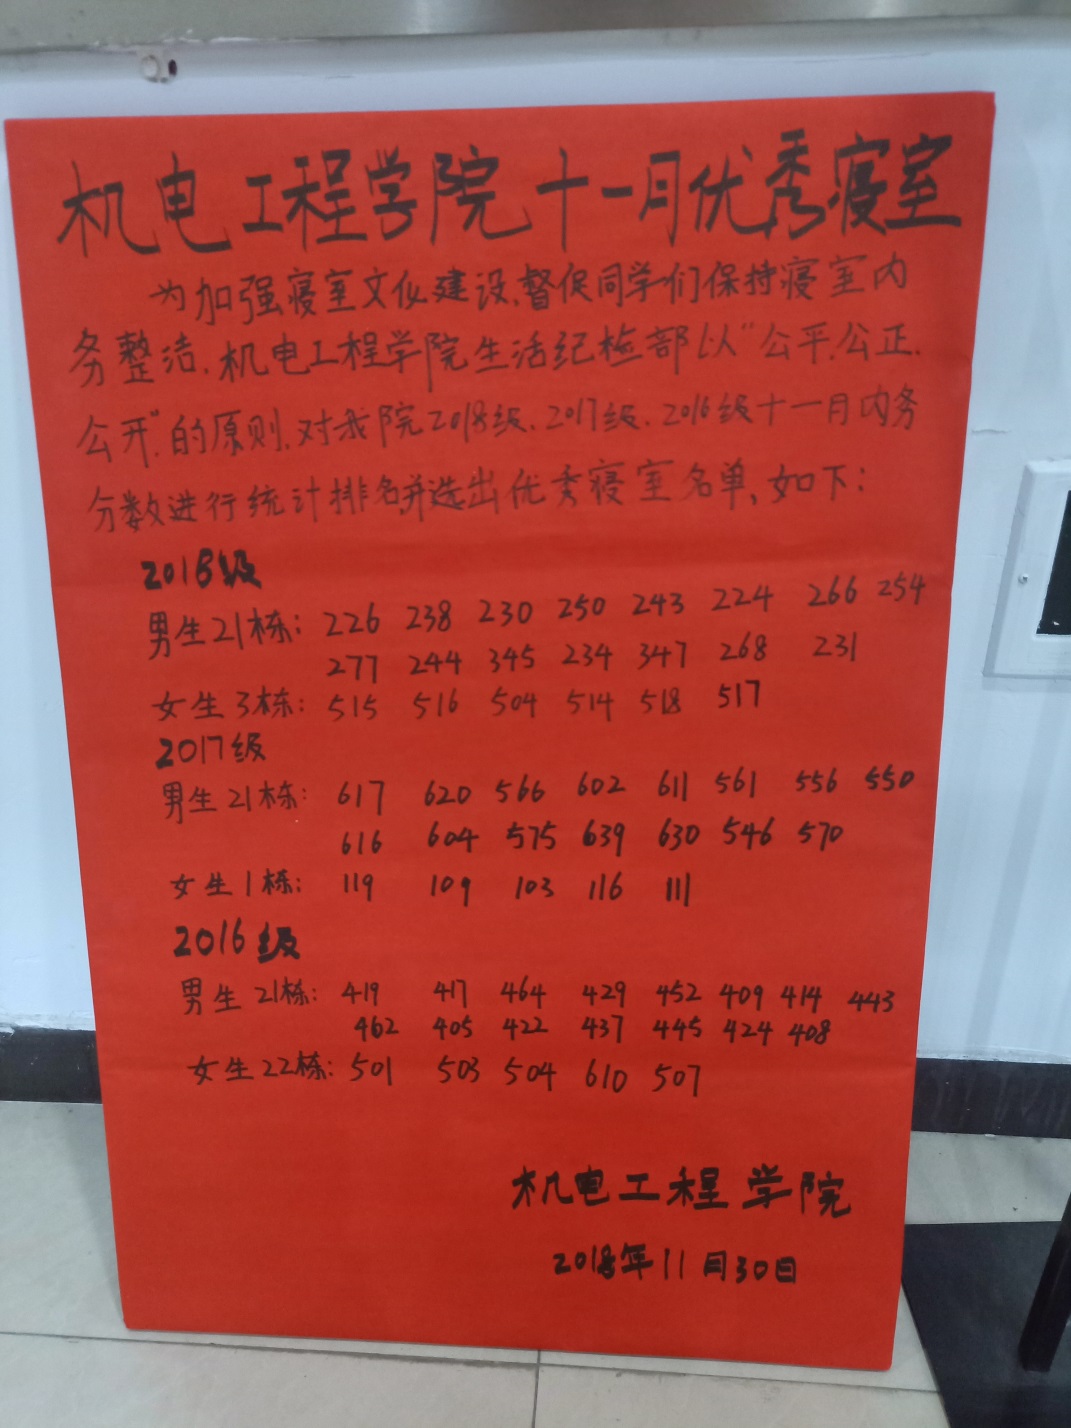 机电工程学院十一月优秀寝室
为加强寝室文化建设、督促同学们保持寝室内
务整洁、机电工程学院生活纪检部以“公平、公正、
公开”的原则、对我院2018级、2017级、2016级十一月内务
分数进行统计排名并选出优秀寝室名单、如下：
2018级
男生21栋： 226 238 230 250 243 224 266 254
277 244 345 234 347 268 231
女生3栋： 515 516 504 514 518 517
2017级
男生21栋： 617 620 566 602 611 561 556 550
616 604 575 639 630 546 570
女生1栋： 119 109 103 116 111
2016级
男生21栋： 419 417 464 429 452 409 414 443
462 405 422 437 445 424 408
女生22栋： 501 503 504 610 507
机电工程学院
2018年11月30日